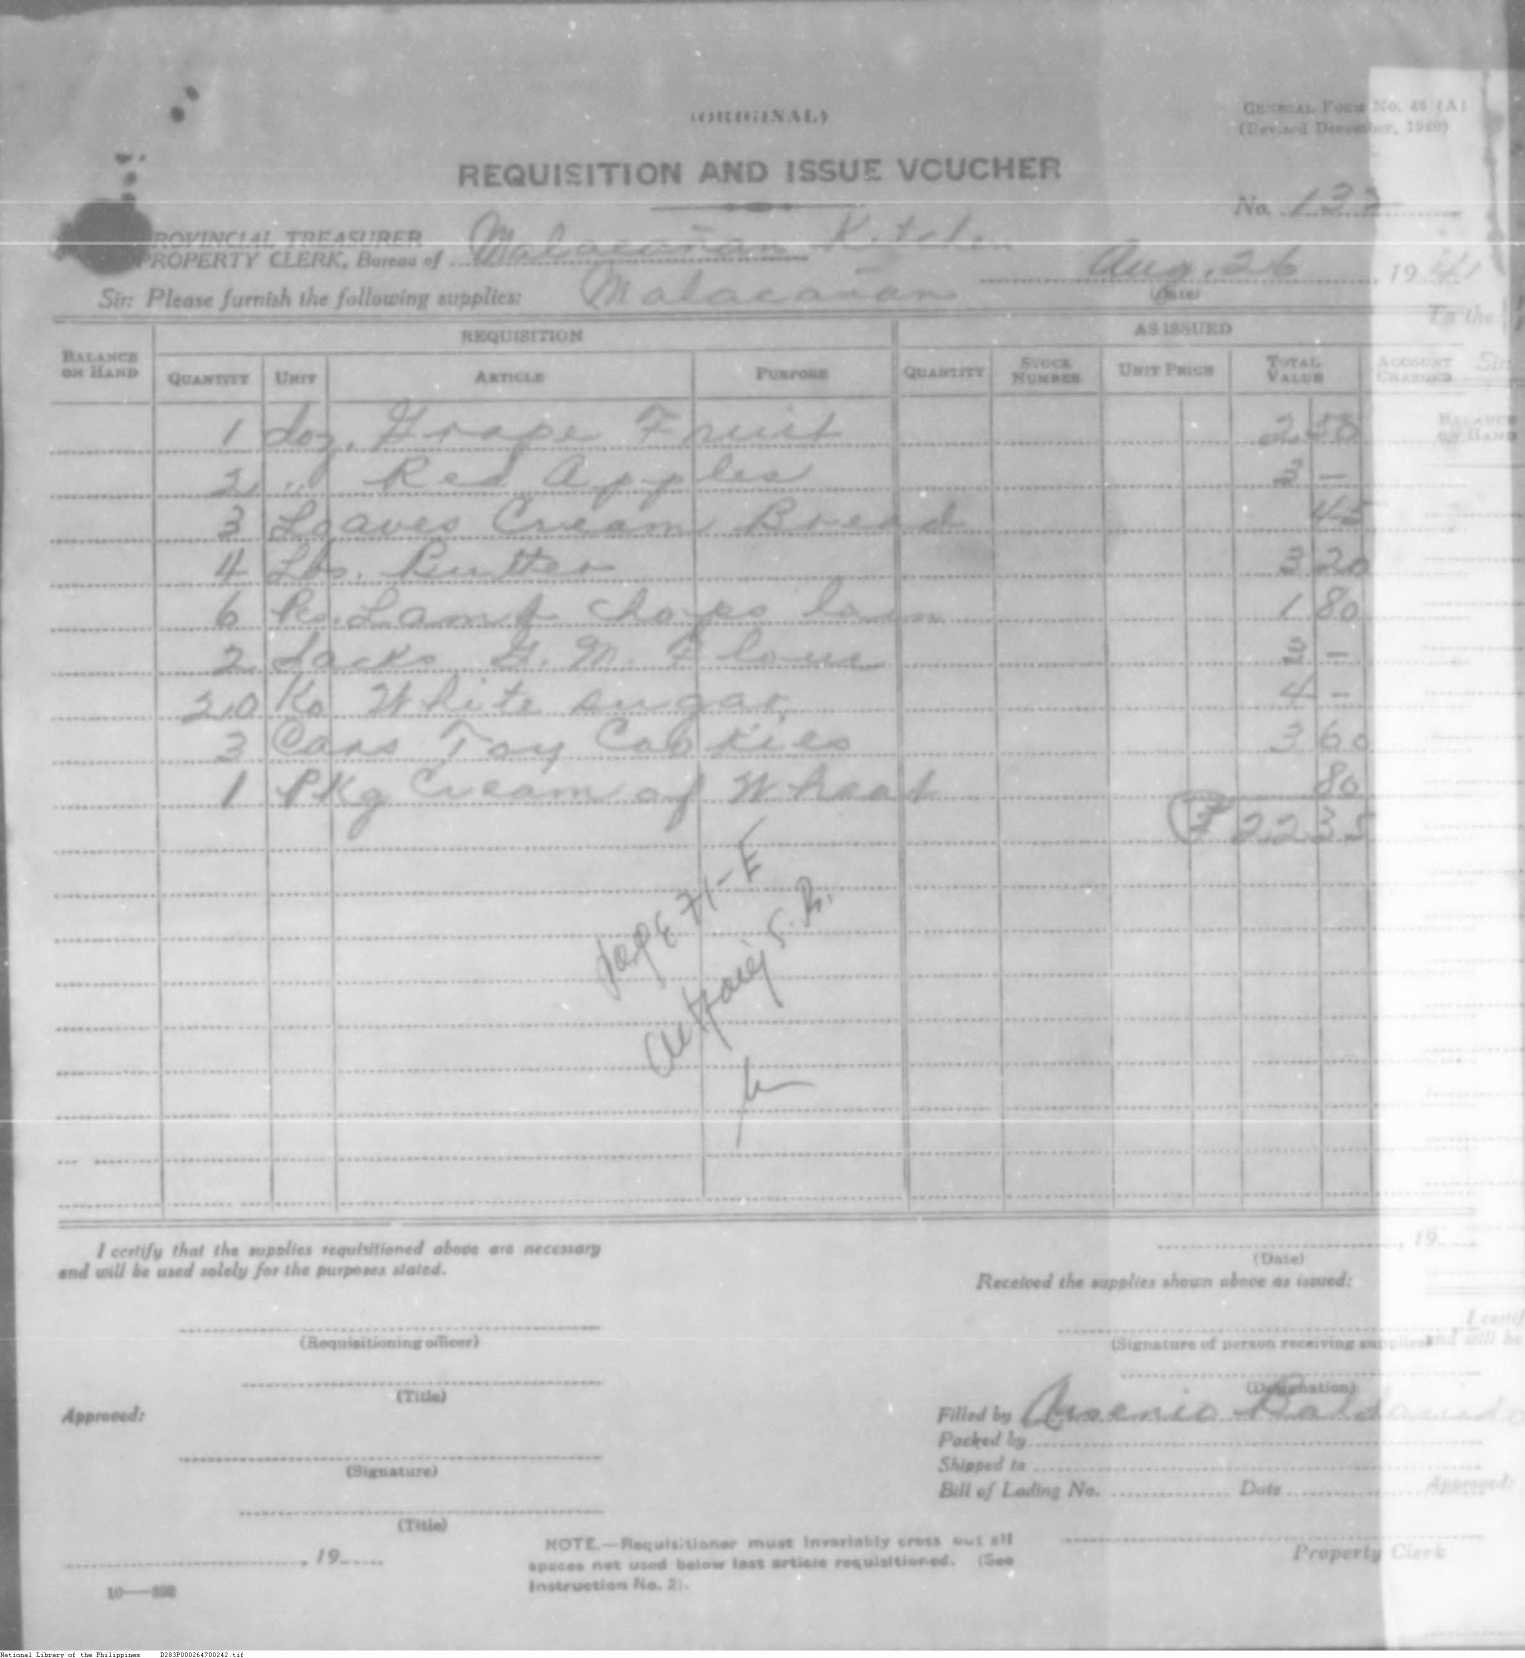 (ORIGINAL)
GENERAL FORM No. 46 (A)
(Revised December, 1940)
REQUISITION AND ISSUE VOUCHER
No. 133
PROVINCIAL TREASURER
PROPERTY CLERK, Bureau of Malacañan Kitchen
Aug. 26, 1941
(Date)
Sir: Please furnish the following supplies: Malacañan
To the
REQUISITION AS ISSUED
BALANCE ON HAND QUANTITY UNIT ARTICLE PURPOSE QUANTITY STOCK NUMBER UNIT PRICE TOTAL VALUE ACCOUNT CHARGED Sir
BALANCE ON HAND
1 doz. Grape Fruit 2 50
2 " Red Apples 3 –
3 Loaves Cream Bread 45
4 Lbs. Butter 3 20
6 Ps. Lamb chops loin 1 80
2 Sacks G. M. Flour 3 –
20 Ko White sugar 4 –
3 Cans Toy Cookies 3 60
1 PKg Cream of Wheat 80
₱ 22 35
page 71-E
S. R.
I certify that the supplies requisitioned above are necessary
and will be used solely for the purposes stated.
, 19
(Date)
Received the supplies shown above as issued:
(Requisitioning officer)
(Signature of person receiving supplies)
I certif
and will be
(Title)
(Designation)
Approved:
Filled by Arsenio
Packed by
Shipped to
(Signature)
Bill of Lading No. Date
Approved:
(Title)
, 19
NOTE.—Requisitioner must invariably cross out all
spaces not used below last article requisitioned. (See
Instruction No. 2).
Property Clerk
National Library of the Philippines D283P000264700242.tif